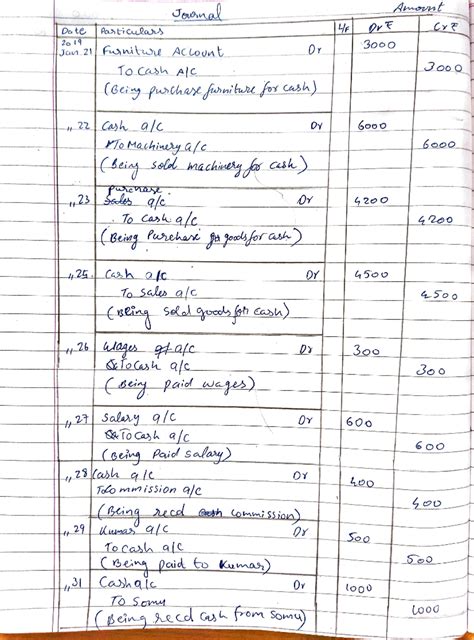 Journal
Amount
Date Particulars L/F Dr ₹ Cr ₹
2019
Jan. 21 Furniture Account Dr 3000
To Cash A/c 3000
(Being purchase furniture for cash)
,,22 Cash a/c Dr 6000
To Machinery a/c 6000
(Being sold machinery for cash)
Purchase
,,23 Sales a/c Dr 4200
To Cash a/c 4200
(Being Purchase goods for cash)
,,25 Cash a/c Dr 4500
To Sales a/c 4500
(Being sold goods for cash)
,,26 Wages a/c Dr 300
To Cash a/c 300
(Being paid wages)
,,27 Salary a/c Dr 600
To Cash a/c 600
(Being Paid salary)
,,28 Cash a/c Dr 400
To Commission a/c 400
(Being recd commission)
,,29 Kumar a/c Dr 500
To Cash a/c 500
(Being paid to Kumar)
,,31 Cash a/c Dr 1000
To Somu 1000
(Being recd cash from Somu)